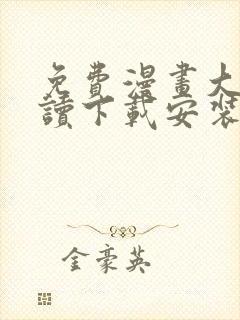 免費漫畫大
讀下載安裝
金豪英